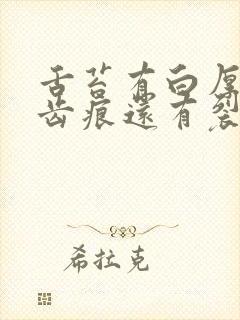 舌苔有白厚
齿痕还有裂
希拉克